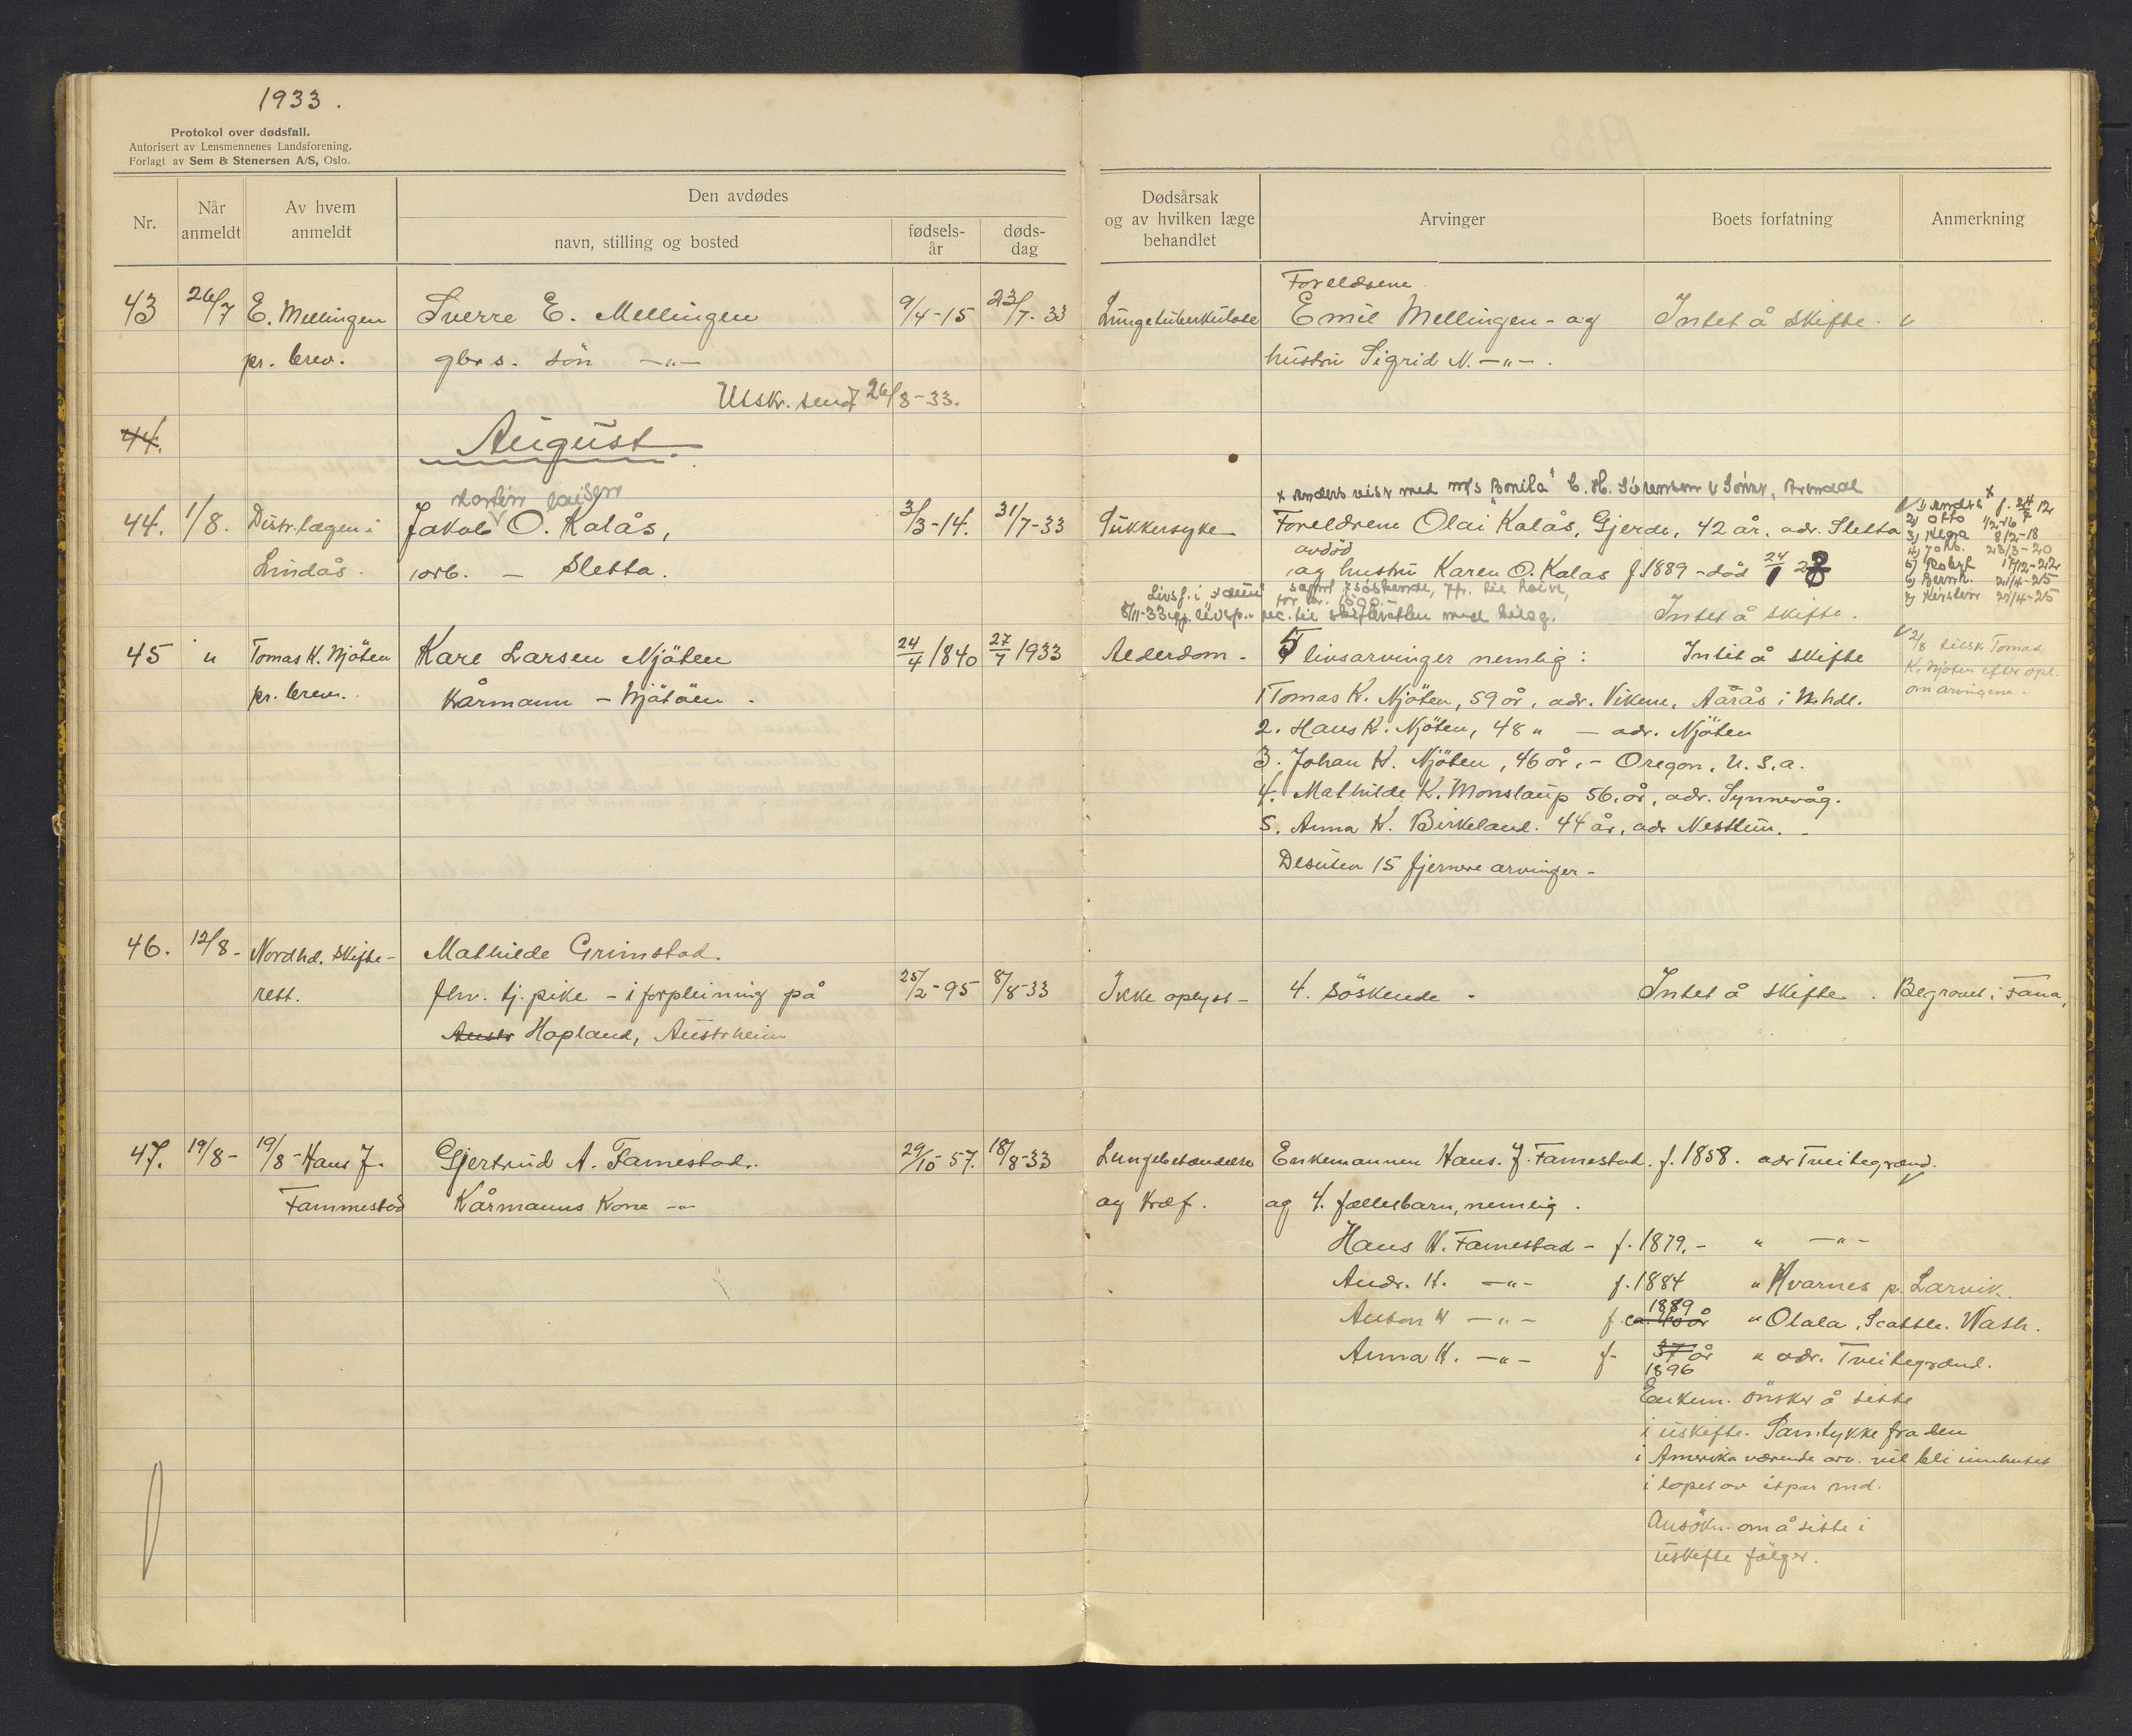 1933.
Protokol over dødsfall.
Autorisert av Lensmennenes Landsforening.
Forlagt av Sem & Stenersen A/S, Oslo.
Nr.
Når anmeldt
Av hvem anmeldt
Den avdødes
navn, stilling og bosted
fødsels-år
døds-dag
Dødsårsak og av hvilken læge behandlet
Arvinger
Boets forfatning
Anmerkning
Foreldrene
43 26/7 E. Mellingen Sverre E. Mellingen 9/4-15 23/7-33 Lungetuberkulose Emil Mellingen - og Intet å skifte. v
pr. brev. gbrs. søn —"— hustru Sigrid N. —"—.
Utskr. sendt 26/8-33.
44. August.
x Anders visr med m/s "Bonita" Arendal
44. 1/8. Distr.lægen i Jakob O. Kalås, 3/3-14. 31/7-33 Sukkersyke Foreldrene Olai Kalås, Gjerde, 42 år. adr. Sletta
Lindås. arb. — Sletta. avdød og hustru Karen O. Kalas f. 1889 - død 24/1
1) Anders x f. 24/7 12
2) Otto 1/2-16
3) Helga 8/2-18
4) Johs. 23/3-20
5) Robert 17/12-22
6) Bernh. 21/4-25
7) Kirsten 21/4-25
samt 7 søskende,
for kr. 1000.-
Intet å skifte.
45 " Tomas K. Njöten Kare Larsen Njöten 24/4 1840 27/7 1933 Alderdom - 5 livsarvinger nemlig: Intet å skifte
pr. brev. Kårmann - Njöten.
v 2/8 tilsk. Tomas
K. Njöten efter opl.
om arvingene.
1 Tomas K. Njöten, 59 år, adr. Vikene, Aarås i N.hdl.
2. Hans K. Njöten, 48 " — adr. Njöten
3. Johan K. Njöten, 46 år, - Oregon, U.S.a.
4. Mathilde K. Monslaup 56 år, adr. Synnevåg.
5. Anna K. Birkeland. 44 år, adr Nesttun.
Desuten 15 fjernere arvinger -
46. 12/8- Nordhd. skifte- Mathilde Grimstad.
rett. fhv. tj.pike - i forpleining på 25/2-95 8/8-33 Ikke oplyst - 4. søskende. Intet å skifte. Begravet i Fana,
Austr Hopland, Austrheim
47. 19/8- 19/8- Hans J. Gjertrud A. Famestad. 29/10 57. 18/8-33 Lungebetændelse Enkemannen Hans. J. Famestad. f. 1858. adr Tveitegrend.
Fammestad Kårmanns Kone —"— og Kræf. og 4. fællesbarn, nemlig.
Hans H. Famestad - f. 1879. - " —"—
Andr. H. —"— f. 1884 " Kvarnes p. Larvik.
Anton H —"— f. ca. 40 år 1889 " Olala, Seattle. Wash.
Anna H. —"— f- 37 år 1896 " adr. Tveitegrend.
Enkem. ønsker å sitte
i uskifte. Samtykke fra den
i Amerika værende arv. vil bli innhentet
i løpet av et par md.
Ansökn. om å sitte i
uskifte følger.